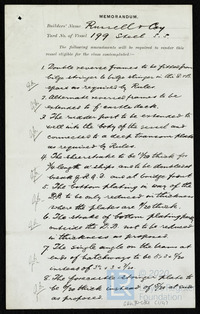 MEMORANDUM.
Builders' Name Russell & Coy
Yard No. of Vessel 199 Steel S.S.
The following amendments will be required to render this
vessel eligible for the class contemplated:—
1 Double reverse frames to be fitted from
bilge stringer to bilge stringer in the E & B
space as required by Rules
2 Alternate reversed frames to be
extended to forecastle deck.
3 The rudder post to be extended to
well into the body of the vessel and
connected to a deep transom plate
as required by Rules.
4 The sheerstrake to be /20 thick for
½ length a'ships and to be doubled in
break of Q.D. and at bridge front
5 The bottom plating in way of the
D.B. to be only reduced in thickness
where the plates are /20 thick.
6 The strake of bottom plating
outside the D.B. not to be reduced
in thickness as proposed
7 The single angle on the beams at
ends of hatchways to be
instead of
8 The forecastle stringer plate to
be /20 thick instead of /20 at ends
as proposed
Foundation